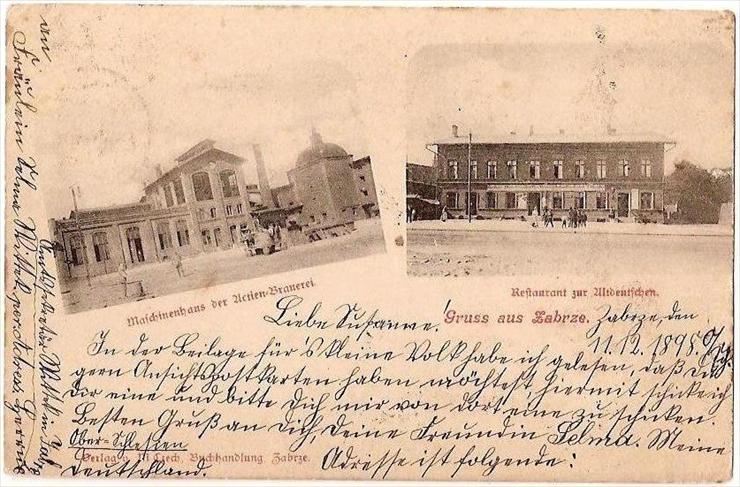 Maschinenhaus der Actien-Brauerei.
Restaurant zur Altdeutschen.
Gruss aus Zabrze.
Liebe Susanne!
Zabrze, den
11.12.1898.
In der Beilage für's kleine Volk habe ich gelesen, daß Du
gern Ansichtspostkarten haben möchtest, hiermit schicke ich
Dir eine und bitte Dich mir von dort eine zu schicken.
Besten Gruß an Dich, Deine Freundin Selma. Meine
Adresse ist folgende:
Ober-Schlesien
Deutschland.
Verlag v. M. Czech, Buchhandlung Zabrze.
an
Fräulein Selma